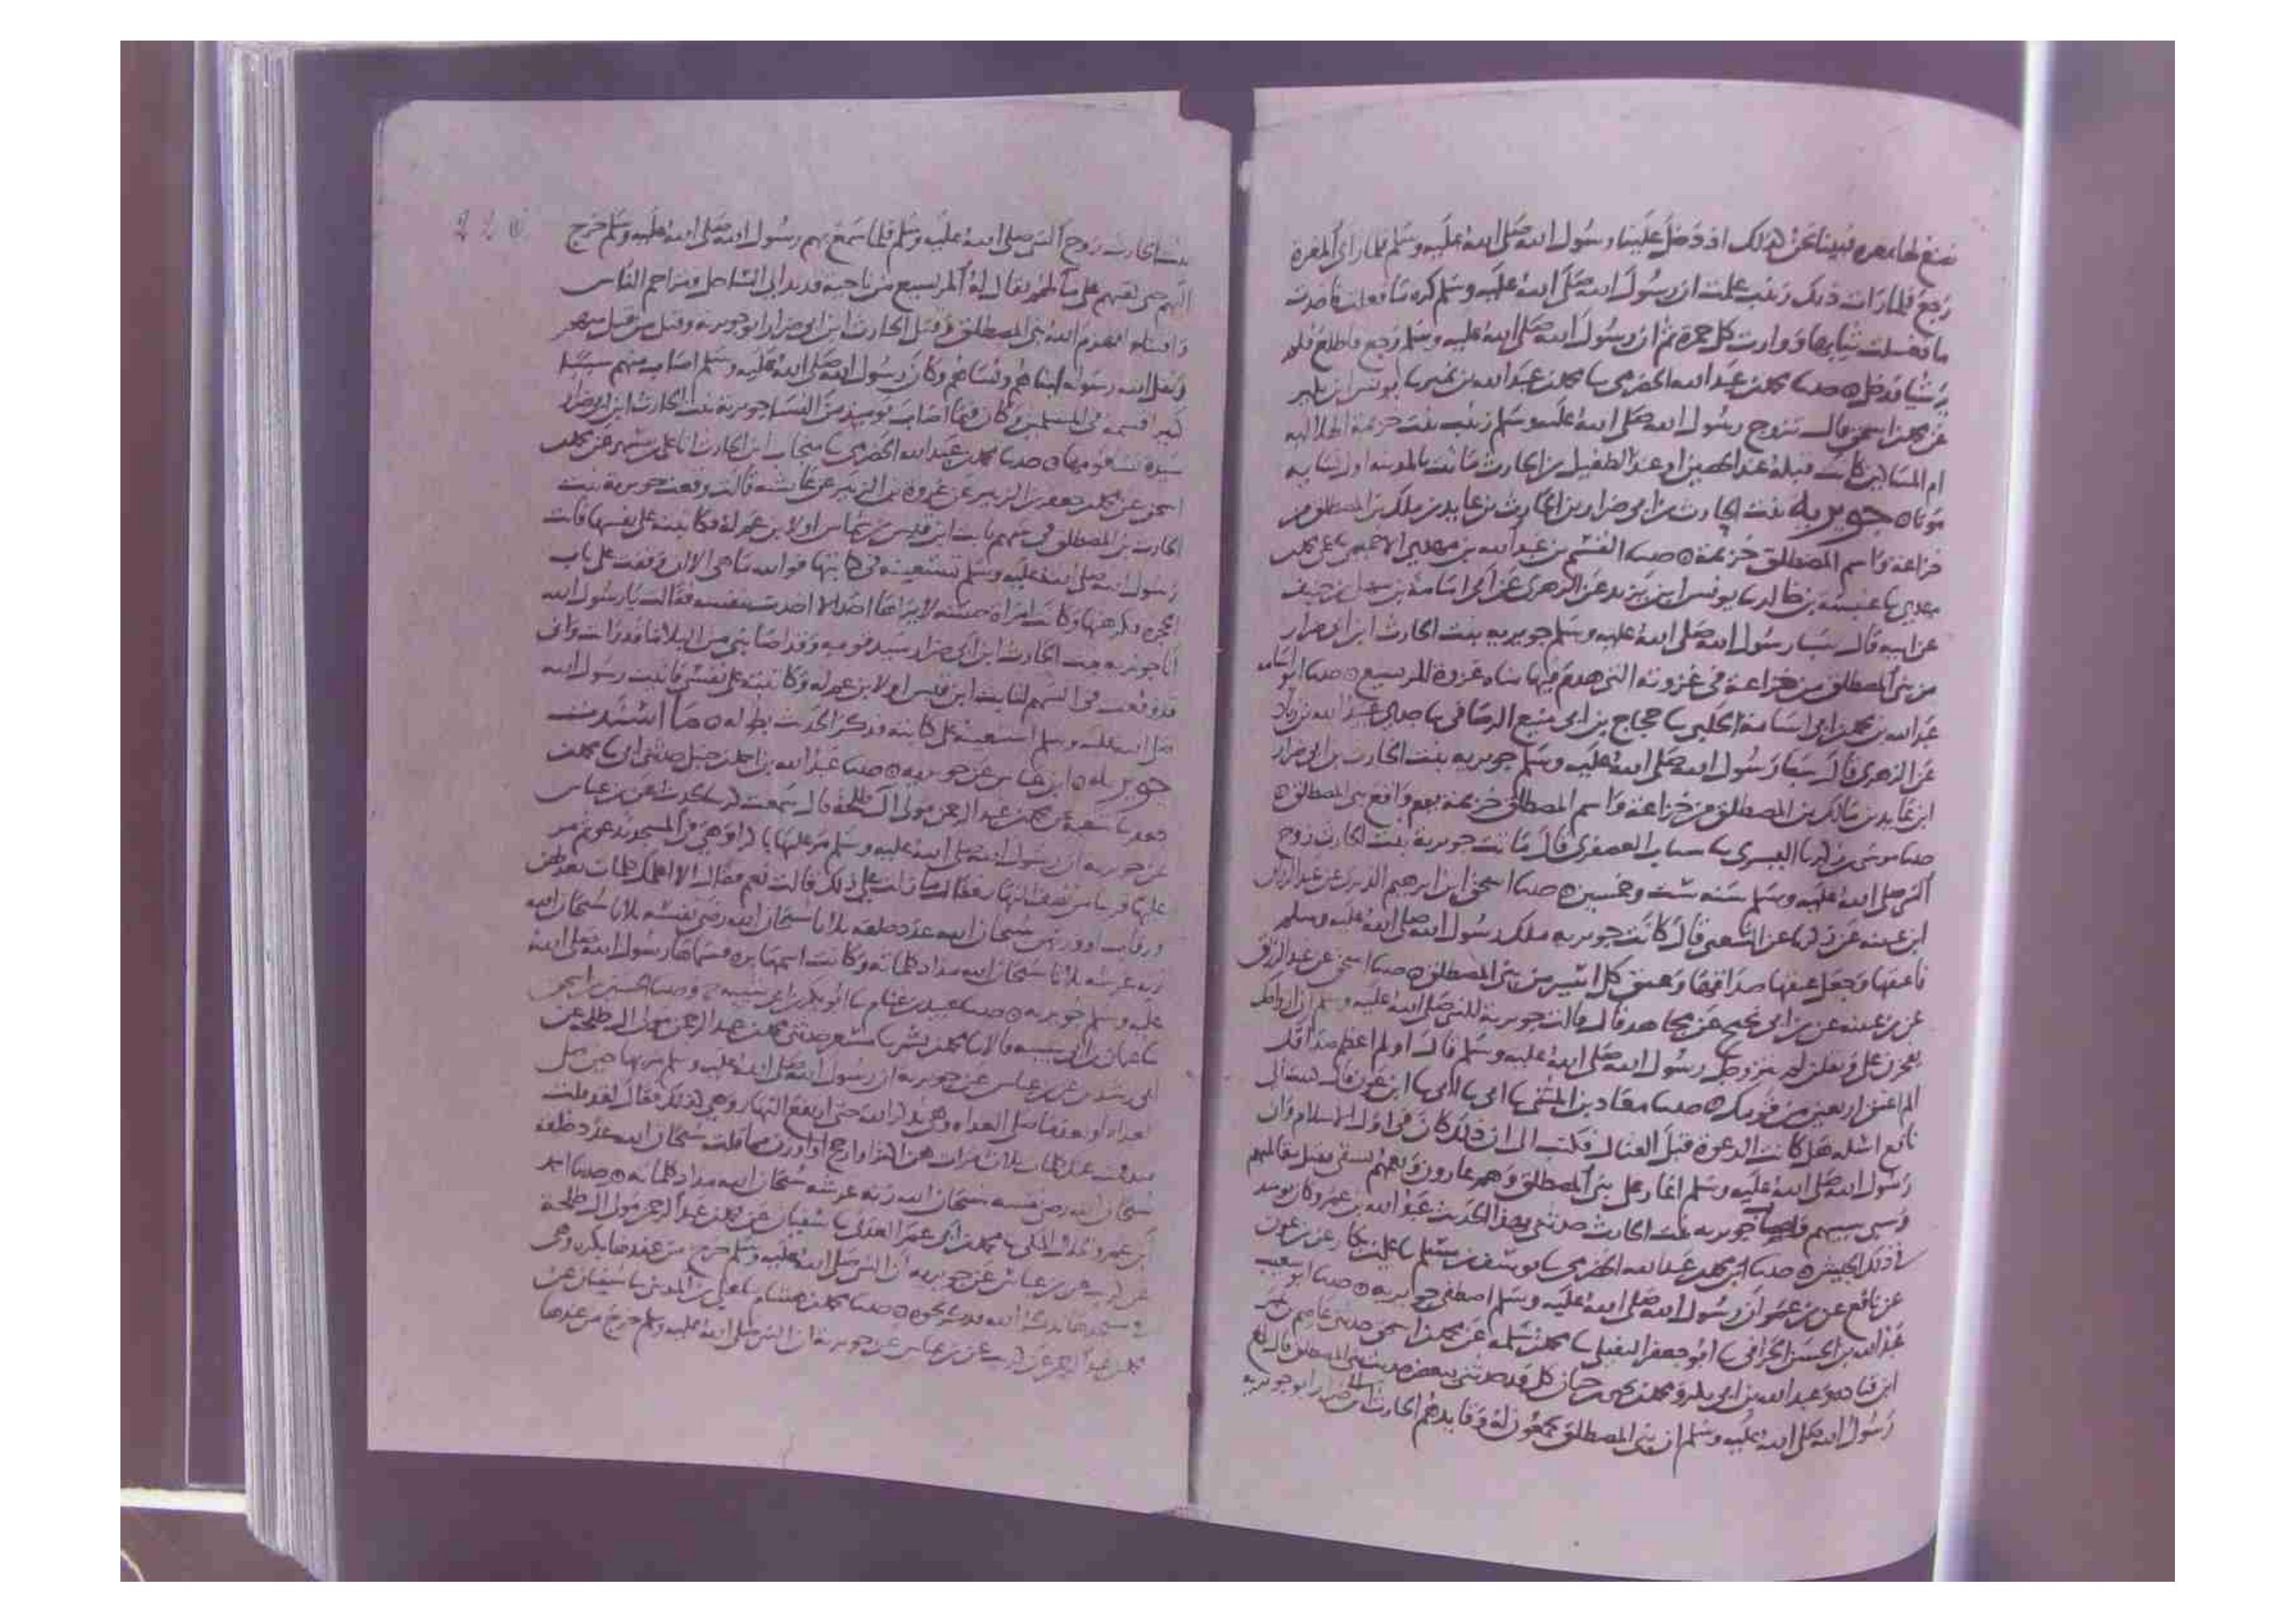 رجع فلما رات ذلك زينب علمت ان رسول الله صلى الله عليه وسلم كره ما فعلت فاخذت
ثم ان رسول الله صلى الله عليه وسلم رجع فاطلع فلما
شيا فدخل حدثنا محمد بن عبد الله الحضرمي ثنا محمد بن عبد الله بن نمير ثنا يونس ابن بكير
عن محمد بن اسحق قال تزوج رسول الله صلى الله عليه وسلم زينب بنت خزيمة الهلالية
ام المساكين كانت قبله عند الحصين او عند الطفيل بن الحارث ماتت بالمدينة اول نسايه
موتا جويرية بنت الحارث بن ابي ضرار بن الحارث بن عايد بن ملك بن المصطلق من
خزاعة واسم المصطلق خزيمة حدثنا القسم بن عبد الله بن مهدي الاخميمي ثنا عمي محمد بن
مهدي ثنا عنبسة بن خالد ثنا يونس ابن يزيد عن الزهري عن ابي امامة بن سهل بن حنيف
عن ابيه قال سبا رسول الله صلى الله عليه وسلم جويرية بنت الحارث ابن ابي ضرار
من بني المصطلق من خزاعة في غزوته التي هدم فيها مناة غزوة المريسيع حدثنا ابو اسامة
عبد الله بن محمد بن ابي اسامة الحلبي ثنا حجاج بن ابي منيع الرصافي ثنا جدي عبيد الله بن زياد
عن الزهري قال سبا رسول الله صلى الله عليه وسلم جويرية بنت الحارث بن ابي ضرار
ابن عايد بن مالك بن المصطلق من خزاعة واسم المصطلق خزيمة يوم واقع بني المصطلق
حدثنا موسى بن زكريا التستري ثنا شباب العصفري قال ماتت جويرية بنت الحارث زوج
النبي صلى الله عليه وسلم سنة ست وخمسين حدثنا اسحق ابن ابراهيم الدبري عن عبد الرزاق
ابن عيينة عن زكريا عن الشعبي قال كانت جويرية ملك رسول الله صلى الله عليه وسلم
فاعتقها وجعل عتقها صداقها وعتق كل اسير من بني المصطلق حدثنا اسحق عن عبد الرزاق
عن بن عيينة عن بن ابي نجيح عن مجاهد قال قالت جويرية للنبي صلى الله عليه وسلم ان ازواجك
يفخرن علي ويقلن لم يتزوجك رسول الله صلى الله عليه وسلم قال اولم اعظم صداقك
الم اعتق اربعين من قومك حدثنا معاذ بن المثنى ثنا ابي ثنا ابي ثنا ابن عون قال كتبت الى
نافع اسله هل كانت الدعوة قبل القتال فكتب الي ان ذلك كان في اول الاسلام وان
رسول الله صلى الله عليه وسلم اغار على بني المصطلق وهم غارون ونعمهم تسقى فقتل مقاتلهم
وسبى سبيهم فاصاب جويرية بنت الحارث حدثني بهذا الحديث عبد الله بن عمر وكان يوميذ
في ذلك الجيش حدثنا محمد بن عبد الله الحضرمي
عن نافع عن بن عمر ان رسول الله صلى الله عليه وسلم اصطفى جويرية حدثنا ابو شعيب
عبد الله بن الحسن الحراني ثنا ابو جعفر النفيلي ثنا محمد بن سلمة عن محمد بن اسحق حدثني عاصم بن عمر
ابن قتادة وعبد الله بن ابي بكر ومحمد بن يحيى بن حبان كل قد حدثني ببعض حديث بني المصطلق قال بلغ
رسول الله صلى الله عليه وسلم ان بني المصطلق يجمعون له وقايدهم الحارث بن ابي ضرار ابو جويرية
بنت الحارث زوج النبي صلى الله عليه وسلم فلما سمع بهم رسول الله صلى الله عليه وسلم خرج
اليهم حتى لقيهم على ما لهم يقال له المريسيع من ناحية قديد الى الساحل وتزاحم الناس
واقتتلوا فهزم الله بني المصطلق وقتل الحارث ابن ابي ضرار ابو جويرية وقتل من قتل منهم
ونفل الله رسوله ابناهم ونساهم وكان رسول الله صلى الله عليه وسلم اصاب منهم سبيا
كثيرا قسمه في المسلمين وكان فيما اصاب يوميذ من النسا جويرية بنت الحارث ابن ابي ضرار
سيدة نسا قومها حدثنا محمد بن عبد الله الحضرمي ثنا منجاب ابن الحارث انا علي بن مسهر عن محمد بن
اسحق عن محمد بن جعفر بن الزبير عن عروة بن الزبير عن عايشة قالت وقعت جويرية بنت
الحارث بن المصطلق في سهم ثابت ابن قيس بن شماس او لابن عم له فكاتبته على نفسها فاتت
رسول الله صلى الله عليه وسلم تستعينه في كتابتها فوالله ما هي الا ان وقفت على باب
الحجرة فكرهتها وكانت امراة
انا جويرية بنت الحارث ابن ابي ضرار سيد قومه وقد اصابني من البلا ما قد رات واني
قد وقعت في السهم لثابت ابن قيس او لابن عم له وكاتبته على نفسي فاتيت رسول الله
صلى الله عليه وسلم استعينه على كتابته فذكر الحديث بطوله ما اسندت
جويرية ابن عباس عن جويرية حدثنا عبد الله بن احمد بن حنبل حدثني ابي ثنا محمد بن
جعفر ثنا شعبة عن محمد بن عبد الرحمن مولى ال طلحة قال سمعت كريبا يحدث عن بن عباس
عن جويرية ان رسول الله صلى الله عليه وسلم مر عليها باكرا وهي في المسجد تدعو ثم مر
عليها قريبا من نصف النهار فقال ما زلت على ذلك قالت نعم فقال الا اعلمك كلمات تعدلهن
سبحان الله عدد خلقه ثلاثا سبحان الله رضى نفسه ثلاثا سبحان الله
زنة عرشه ثلاثا سبحان الله مداد كلماته وكانت اسمها برة فسماها رسول الله صلى الله
عليه وسلم جويرية حدثنا عبيد بن غنام ثنا ابو بكر بن ابي شيبة ح وحدثنا الحسين بن اسحق
ثنا عثمان بن ابي شيبة قالا ثنا محمد بن بشر ثنا مسعر حدثني محمد بن عبد الرحمن مولى ال طلحة عن
ابي رشدين عن بن عباس عن جويرية ان رسول الله صلى الله عليه وسلم مر بها حين صلى
الغداة او بعد ما صلى الغداة وهي تذكر الله حتى ارتفع النهار وهي كذلك فقال لقد قلت
سبحان الله عدد خلقه
سبحان الله رضى نفسه سبحان الله زنة عرشه سبحان الله مداد كلماته حدثنا احمد
ابن عمرو الخلال المكي ثنا محمد بن ابي عمر العدني ثنا سفيان عن محمد بن عبد الرحمن مولى ال طلحة
عن كريب عن بن عباس عن جويرية ان النبي صلى الله عليه وسلم خرج من عندها بكرة وهي
في مسجدها حدثنا محمد بن هشام ثنا علي بن المديني ثنا سفيان عن
محمد بن عبد الرحمن عن كريب عن بن عباس عن جويرية ان النبي صلى الله عليه وسلم خرج من عندها